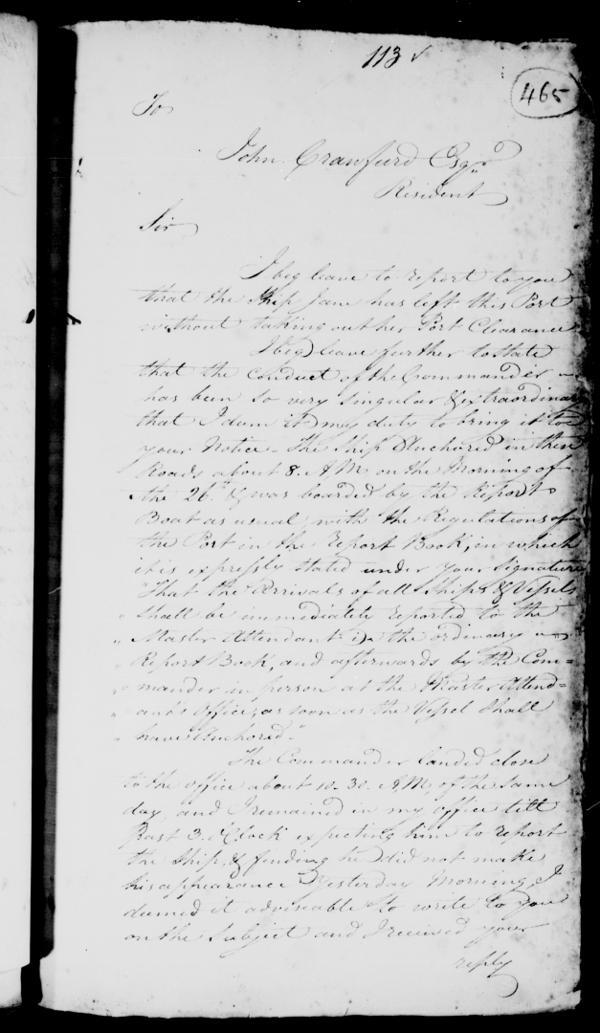 113 ✓
465
To
John Crawfurd Esqr
Resident
Sir
I beg leave to report to you
that the Ship Jane has left this Port
without taking out her Port Clearance
I beg leave further to state
that the Conduct of the Commander
has been so very singular & extraordinary
that I deem it my duty to bring it to
your Notice. The Ship Anchored in these
Roads about 8. A.M. on the Morning of
the 26th & was boarded by the Report
Boat as usual, with the Regulations of
the Port in the Report Book, in which
it is expressly stated under your Signature
"That the Arrivals of all Ships & Vessels
" shall be immediately reported to the
" Master Attendant in the ordinary
" Report Book, and afterwards by the Com=
" mander in person at the Master Attend=
" ant's Office, as soon as the Vessel shall
" have Anchored."
The Commander landed close
to the office about 10.30. A.M. of the same
day, and I remained in my office till
Past 3. o'Clock expecting him to report
the Ship, & finding he did not make
his appearance Yesterday Morning, I
deemed it adviseable to write to you
on the Subject and I received your
reply